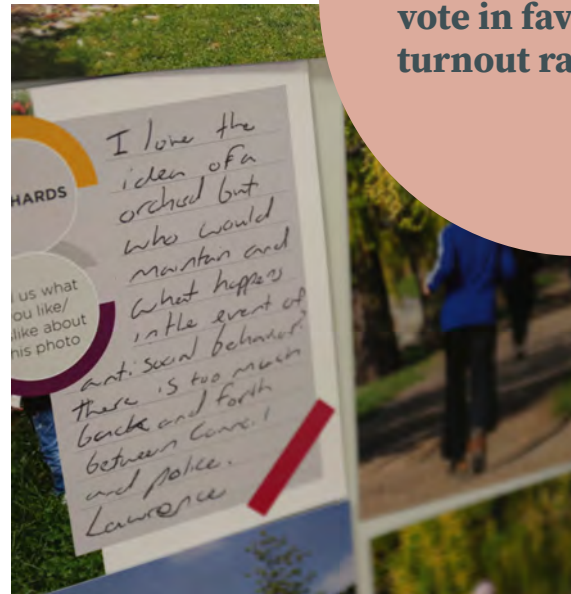 vote in fav
turnout ra
HARDS
us what
ou like/
like about
his photo
I love the
idea of a
orchad but
who would
maintain and
what happens
in the event of
anti social behaviour?
there is too much
back and forth
between Council
and police.
Lawrence